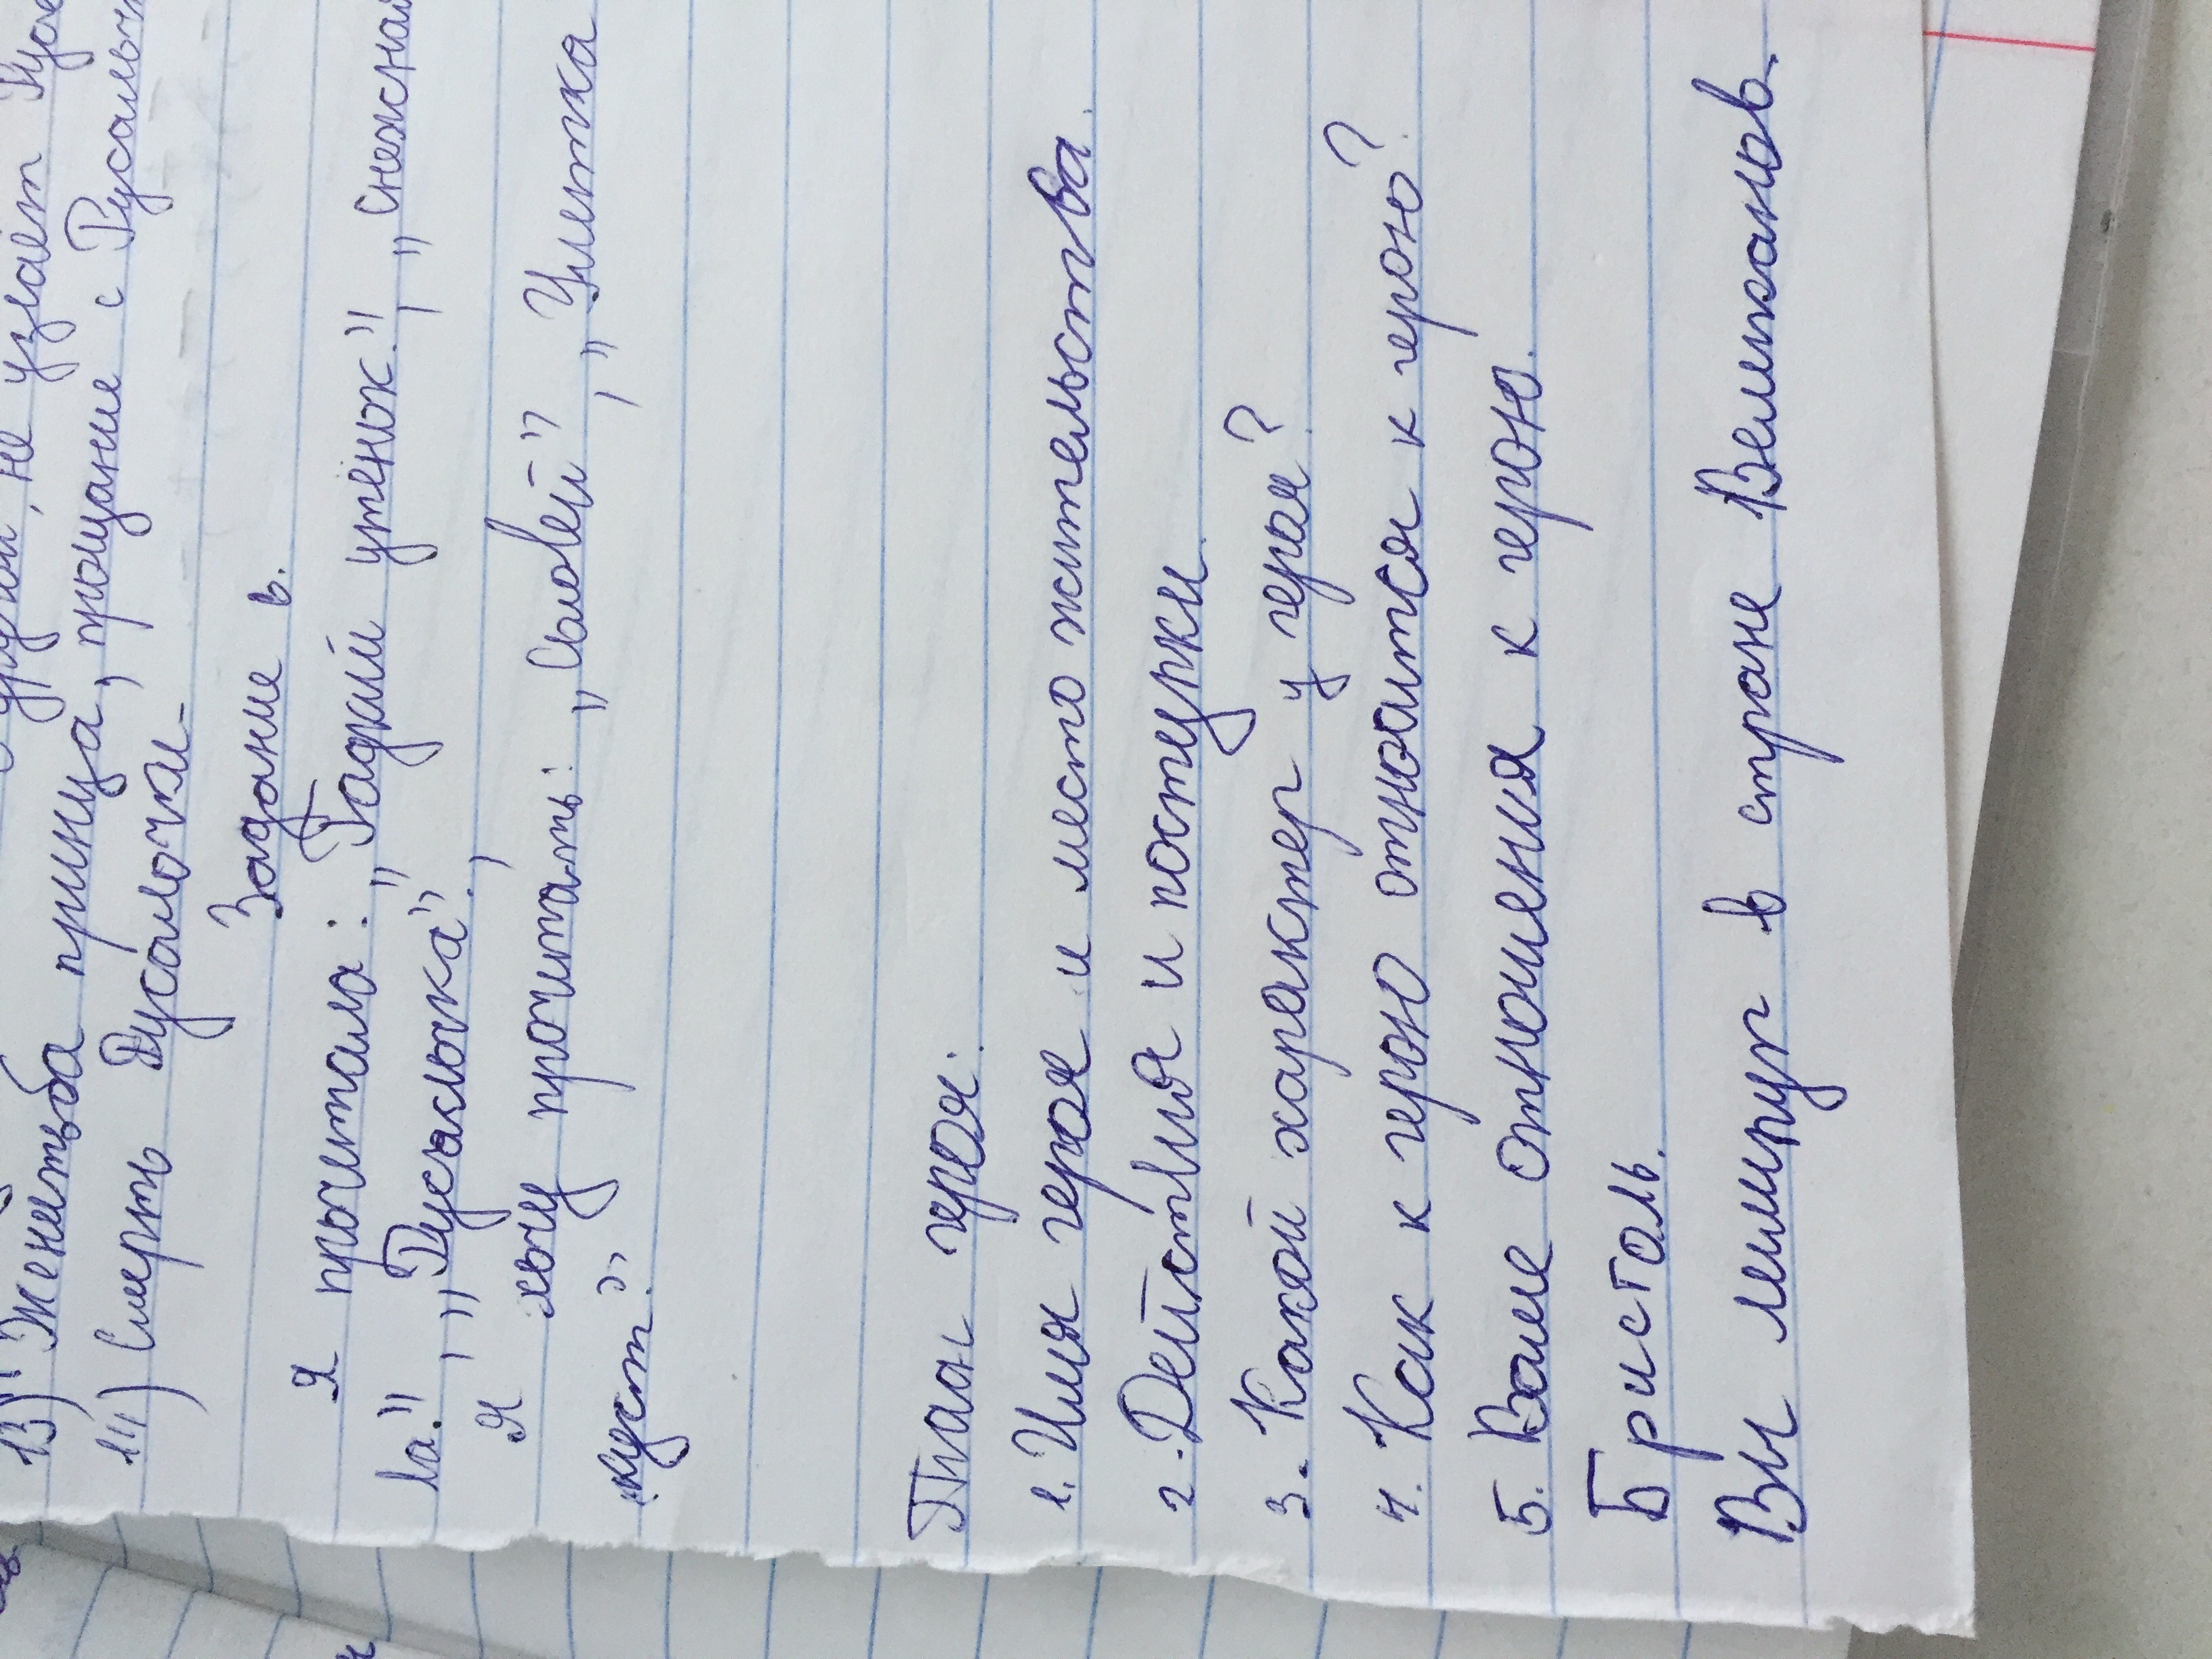 другой, не узнаёт
13) Женитьба принца, прощание с Русалоч
14) Смерть Русалочки.
Задание в.
Я прочитала: „Гадкий утёнок.", „Снежная
ла.", „Русалочка".,
Я хочу прочитать: „Соловей", „Улитка
куст."
План героя:
1. Имя героя и место жительства.
2. Действия и поступки.
3. Какой характер у героя?
4. Как к герою относится к герою?
5. Ваше отношения к герою.
Бристоль.
Вы лилипут в стране Великанов.